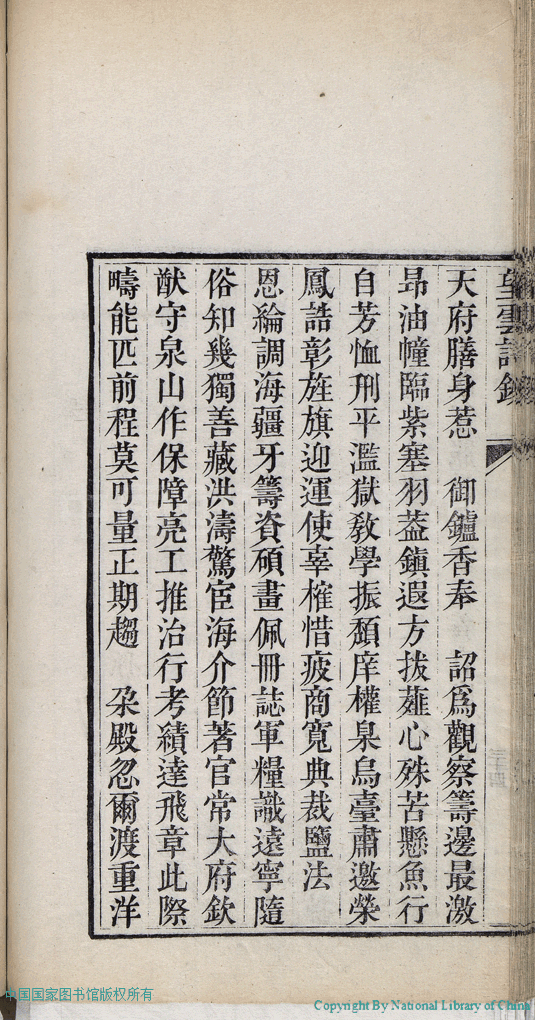 望雲詩鈔
天府膳身惹　御鑪香奉　詔爲觀察籌邊最激
昂油幢臨紫塞羽葢鎮遐方拔薤心殊苦懸魚行
自芳恤刑平濫獄敎學振頽庠權臬烏臺肅邀榮
鳳誥彰旌旗迎運使辜榷惜疲商寬典裁鹽法
恩綸調海疆牙籌資碩畫佩冊誌軍糧識遠寧隨
俗知幾獨善藏洪濤驚宦海介節著官常大府欽
猷守泉山作保障亮工推治行考績達飛章此際
疇能匹前程莫可量正期趨　朶殿忽爾渡重洋
中国国家图书馆版权所有
Copyright By National Library of China